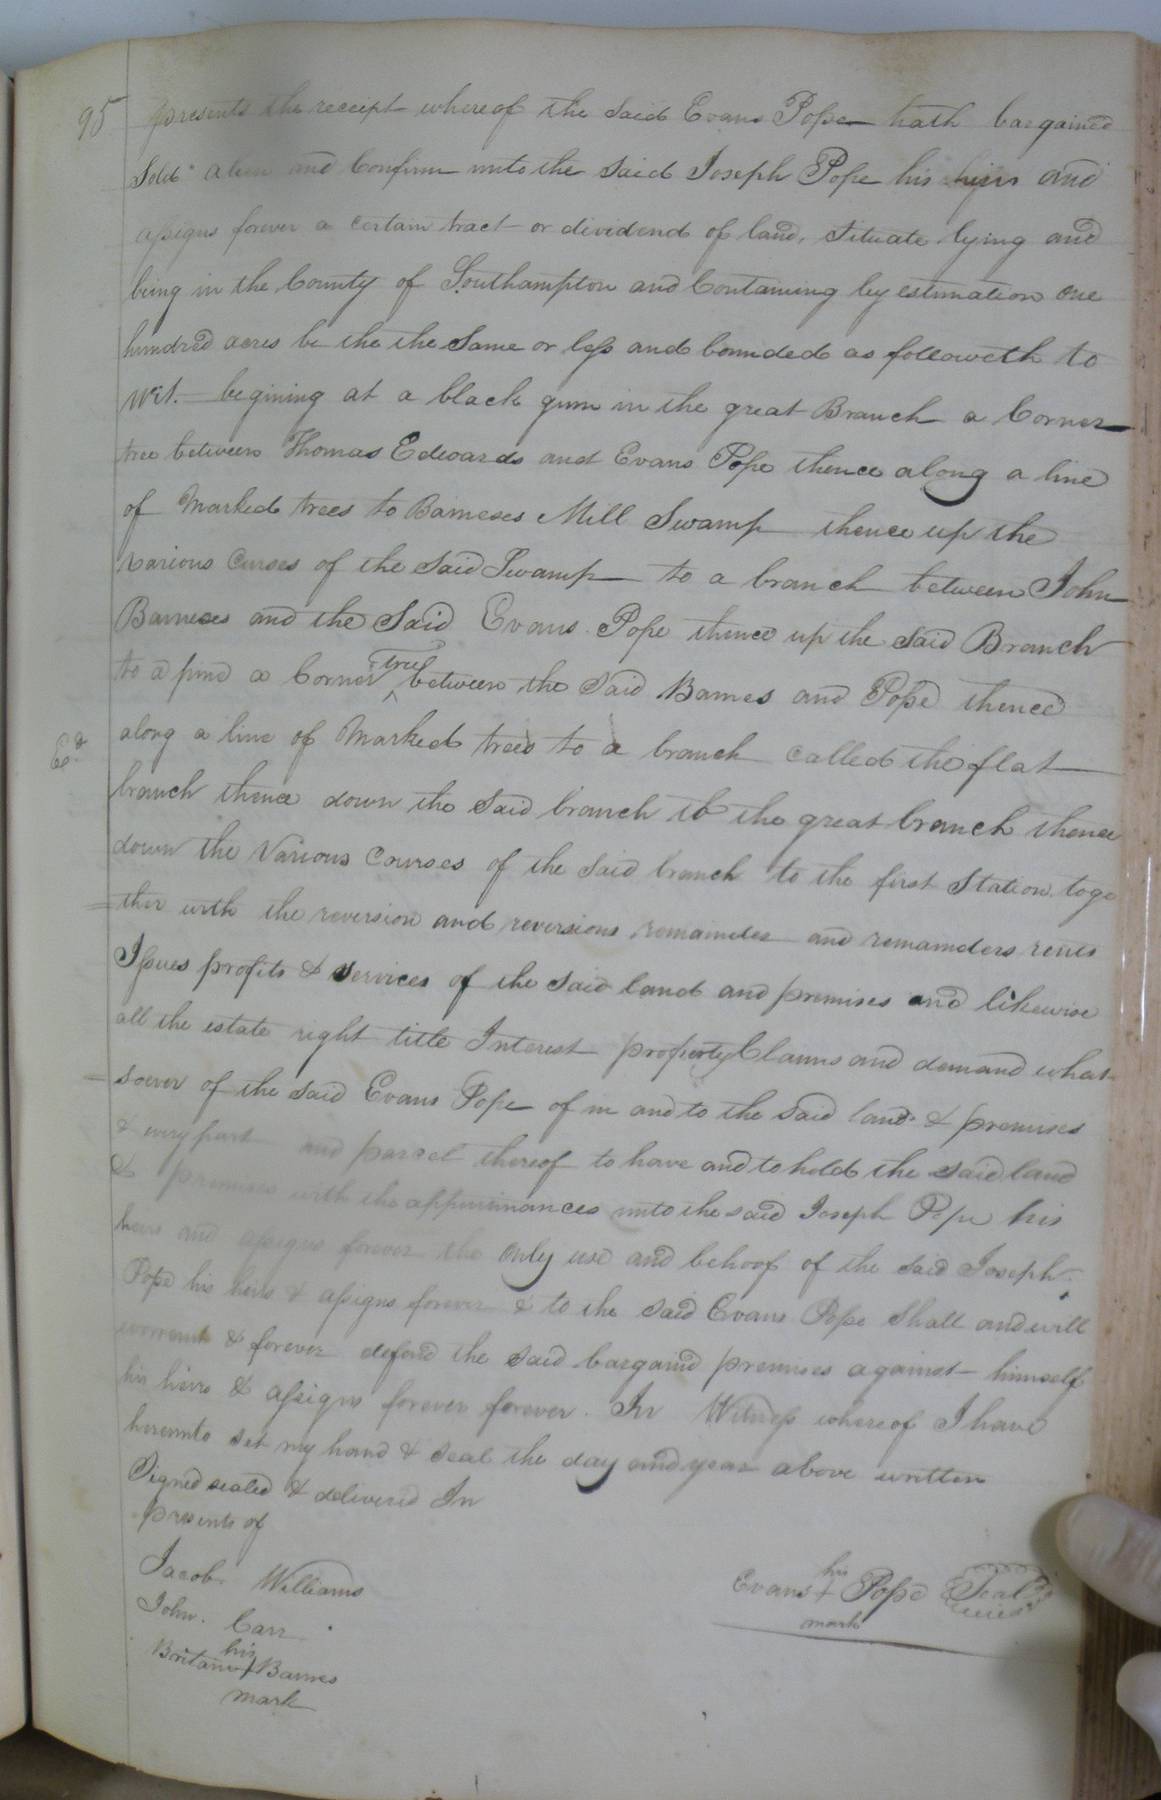 95
presents the receipt whereof the said Evans Pope hath bargained
Sold alien and Confirm unto the said Joseph Pope his heirs and
assigns forever a certain tract or dividend of land, situate lying and
being in the County of Southampton and Containing by estimation one
hundred acres be the the Same or less and bounded as followeth to
wit. begining at a black gum in the great Branch a Corner
tree between Thomas Edwards and Evans Pope thence along a line
of Marked trees to Barneses Mill Swamp thence up the
various Curses of the said Swamp to a branch between John
Barneses and the Said Evans Pope thence up the said Branch
to a pine a Corner tree between the said Barnes and Pope thence
along a line of Marked trees to a branch called the flat
Ed
branch thence down the said branch to the great branch thence
down the Various Courses of the said branch to the first Station toge
=ther with the reversion and reversions remainder and remainders rents
Issues profits & services of the said land and premises and likewise
all the estate right title Interest property Claims and demand what
-soever of the said Evans Pope of in and to the said land & premises
& every part and parcel thereof to have and to hold the said land
& premises with the appurinances unto the said Joseph Pope his
heirs and assigns forever the only use and behoof of the said Joseph
Pope his heirs & assigns forever & to the said Evans Pope Shall and will
warrant & forever defend the said bargaind premises against himself
his heirs & assigns forever forever. In Witness whereof I have
hereunto set my hand & seal the day and year above written
Signed sealed & delivered In
presents of
Jacob Williams
John. Carr
his
Britain + Barnes
mark
his
Evans + Pope Seal
mark